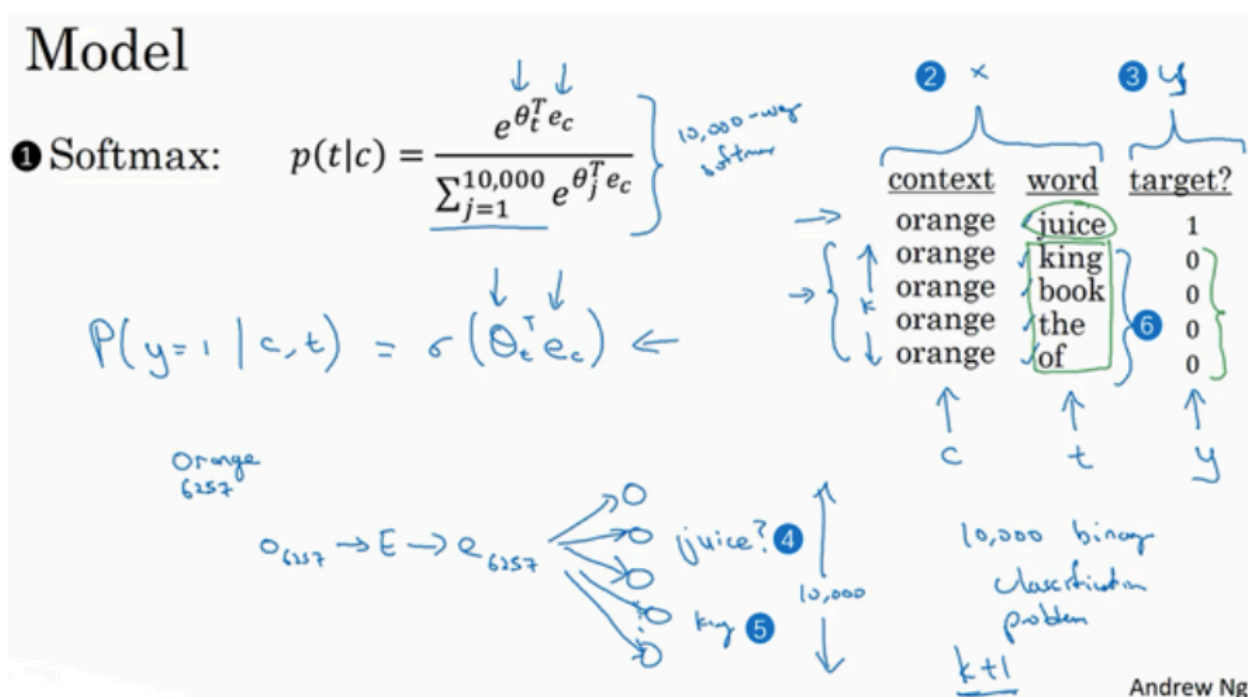 Model
❶ Softmax: p(t|c) = e^{θ_t^T e_c} / Σ_{j=1}^{10,000} e^{θ_j^T e_c}
10,000-way
softmax
2 x
3 y
context word target?
orange juice 1
orange king 0
orange book 0
orange the 0
orange of 0
k
6
c t y
P(y=1 | c,t) = σ(θ_t^T e_c) ←
Orange
6257
o_6257 → E → e_6257
juice? 4
king 5
10,000
10,000 binary
classification
problem
k+1
Andrew Ng